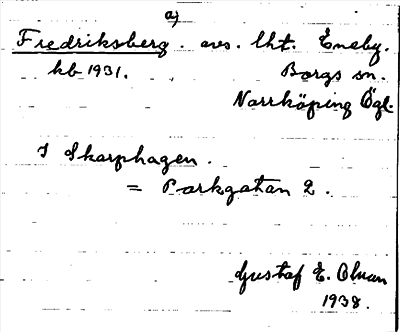 a)
Fredriksberg. avs. lht. Eneby.
kb 1931. Borgs sn.
Norrköping Ögl.
I Skarphagen.
= Parkgatan 2.
Gustaf E. Olsson
1938.